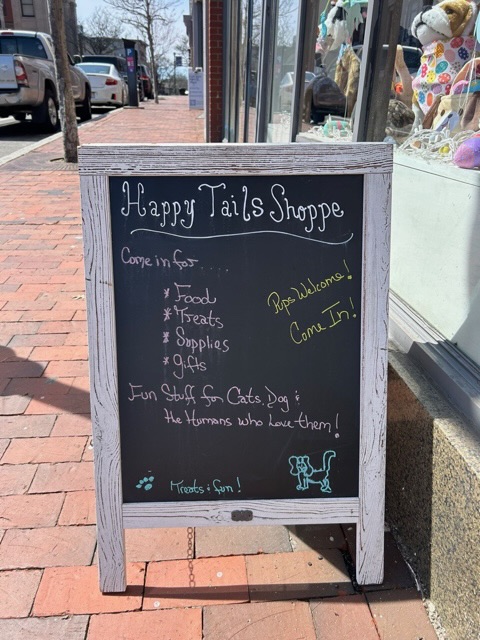 Happy Tails Shoppe
Come in for.....
* Food
* Treats
* Supplies
* Gifts
Pups Welcome!
Come In!
Fun Stuff for Cats, Dog &
the Humans who Love them!
Treats & fun!